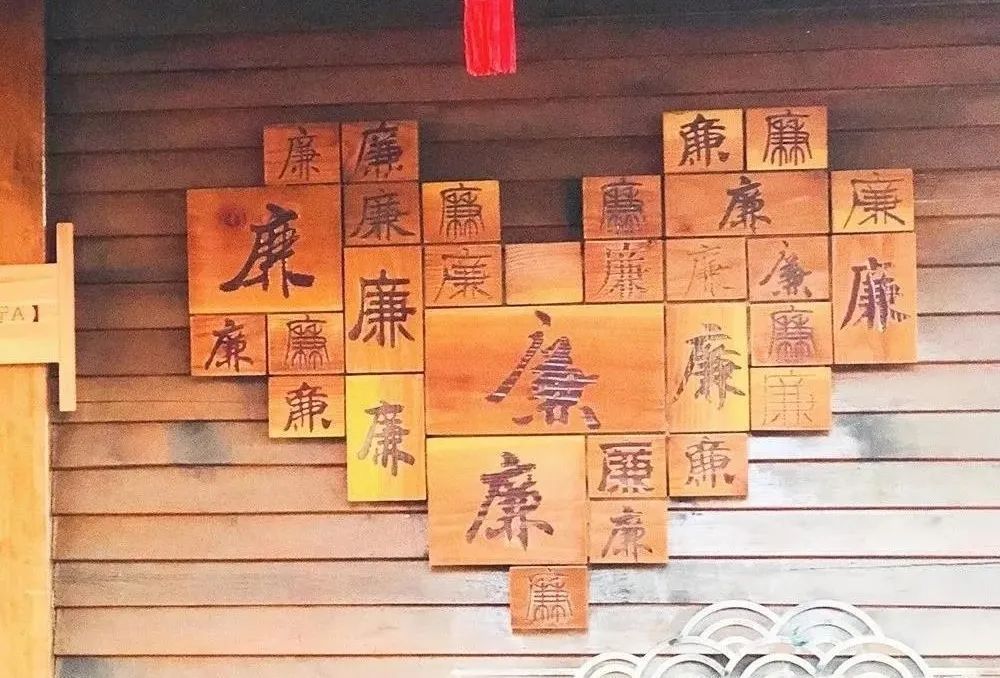 廉 廉 廉 廉
廉 廉 廉 廉 廉 廉
廉 廉 廉 廉 廉
廉 廉 廉 廉
廉 廉
廉 廉 廉
廉 廉 廉
廉
廉
A】